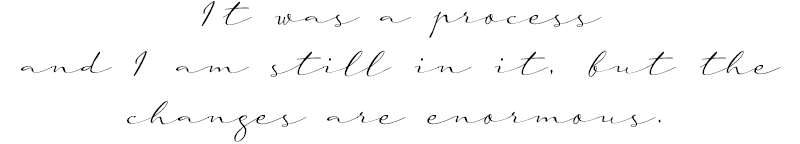 It was a process
and I am still in it, but the
changes are enormous.